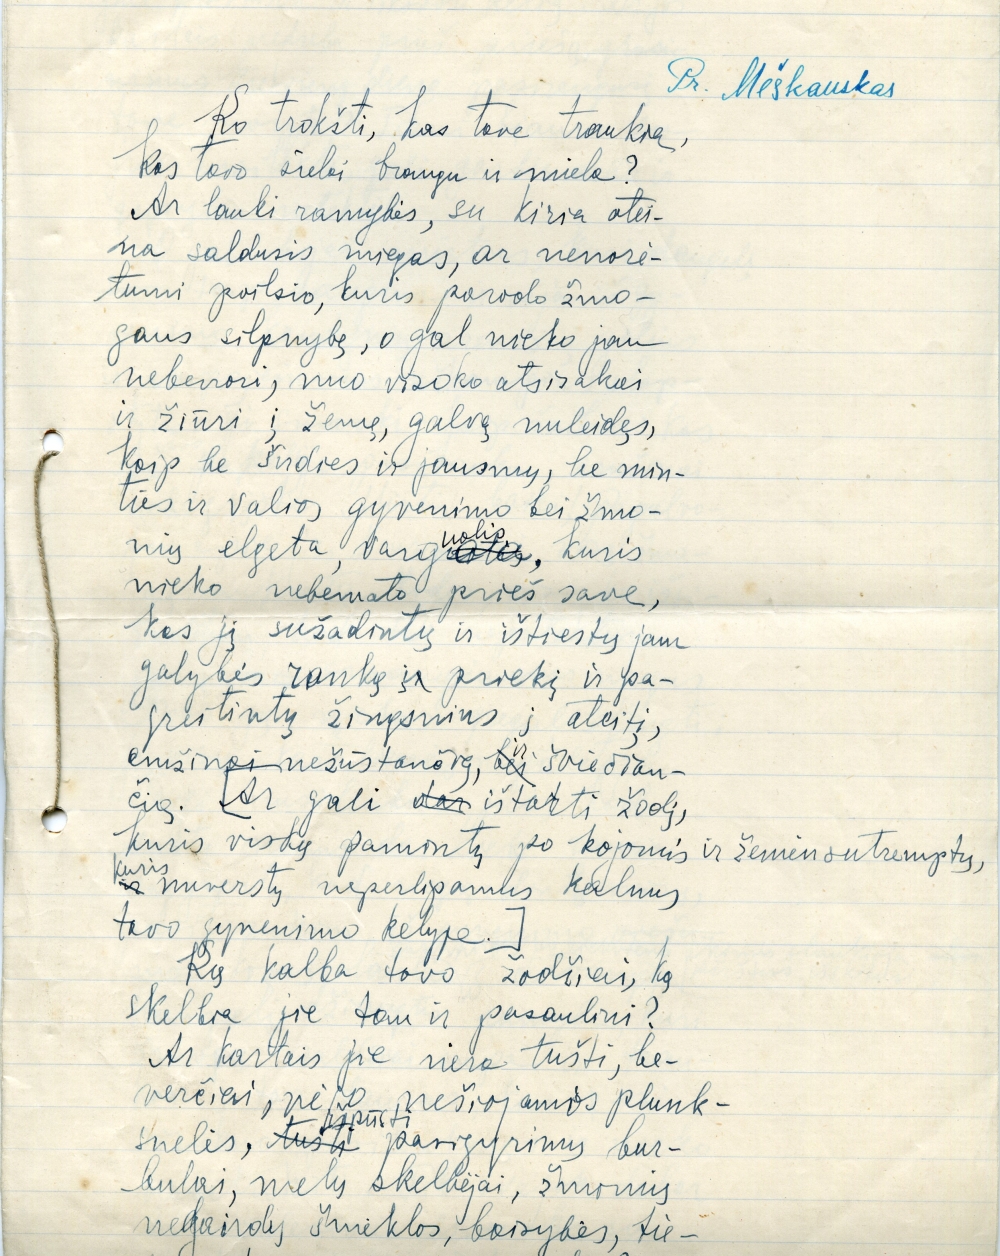 Pr. Meškauskas
Ko trokšti, kas tave traukia,
kas tavo sielai brangu ir miela?
Ar lauki ramybės, su kuria atei-
na saldusis miegas, ar nenorė-
tumi poilsio, kuris parodo žmo-
gaus silpnybę, o gal nieko jau
nebenori, nuo visoko atsisakai
ir žiūri į žemę, galvą nuleidęs,
kaip be širdies ir jausmų, be min-
ties ir valios gyvenimo bei žmo-
nių elgeta, varguolis, kuris
nieko nebemato prieš save,
kas jį sužadintų ir ištiestų jam
galybės ranką į priekį ir pa-
greitintų žingsnius į ateitį,
amžinai nežūstančią, ir šviečian-
čią. [Ar gali dar ištarti žodį,
kuris viską pamintų po kojomis ir žemėn sutremptų,
kuris nuverstų neperlipamus kalnus
tavo gyvenimo kelyje.]
Ką kalba tavo žodžiai, ką
skelbia jie tau ir pasauliui?
Ar kartais jie nėra tušti, be-
verčiai, vėjo nešiojamos plunk-
snelės, išpūsti pasigyrimų bur-
bulai, melų skelbėjai, žmonių
negandų šmėklos, baisybės, tie-